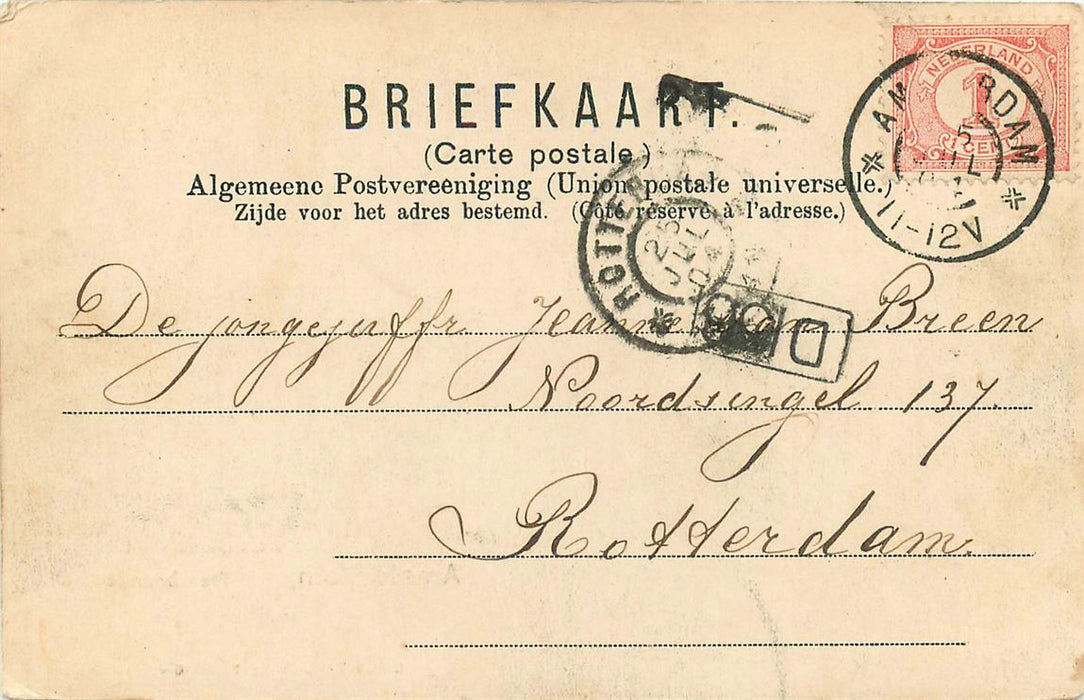 BRIEFKAART.
(Carte postale.)
Algemeene Postvereeniging (Union postale universelle.)
Zijde voor het adres bestemd. (Côté réservé à l'adresse.)
NEDERLAND
1
1 CENT
AM RDAM
5
11-12V
ROTTER
25
JUL
04
D
De jongejuffr. Jeanne van Breen
Noordsingel 137
Rotterdam.